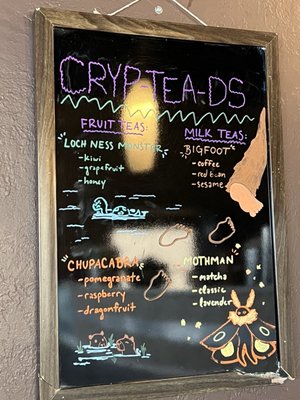 CRYP-TEA-DS
FRUIT TEAS:
LOCH NESS MONSTER
- kiwi
- grapefruit
- honey
CHUPACABRA
- pomegranate
- raspberry
- dragonfruit
MILK TEAS:
BIGFOOT
- coffee
- red bean
- sesame
MOTHMAN
- matcha
- classic
- lavender